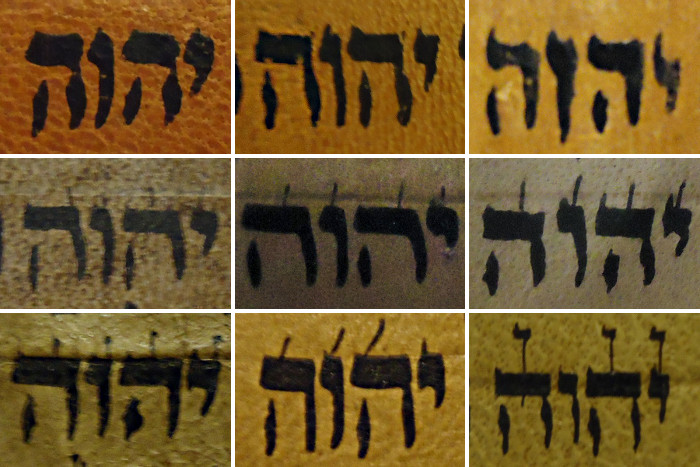 יהוה יהוה יהוה
יהוה יהוה יהוה
יהוה יהוה יהוה